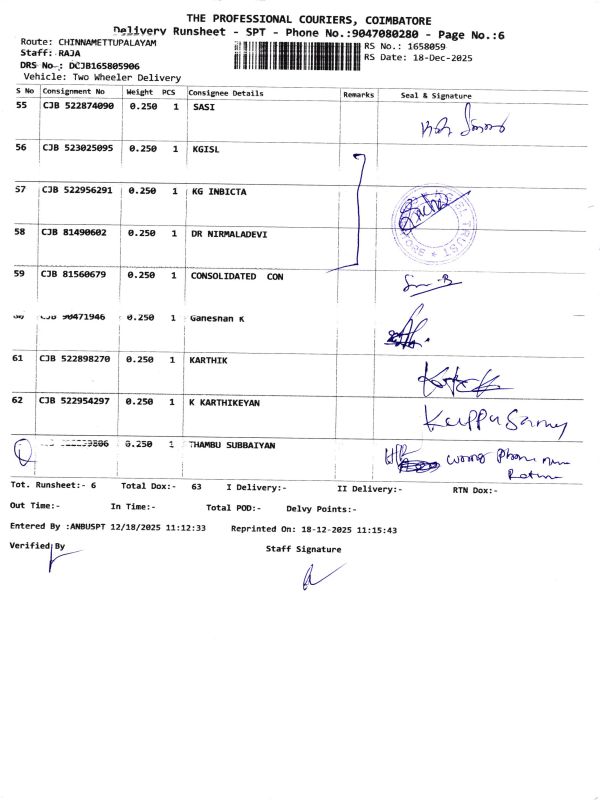 THE PROFESSIONAL COURIERS, COIMBATORE
Delivery Runsheet - SPT - Phone No.:9047080280 - Page No.:6
Route: CHINNAMETTUPALAYAM
RS No.: 1658059
Staff: RAJA
RS Date: 18-Dec-2025
DRS No : DCJB165805906
Vehicle: Two Wheeler Delivery
S No Consignment No Weight PCS Consignee Details Remarks Seal & Signature
55 CJB 522874090 0.250 1 SASI
56 CJB 523025095 0.250 1 KGISL
57 CJB 522956291 0.250 1 KG INBICTA
58 CJB 81490602 0.250 1 DR NIRMALADEVI
TRUST
59 CJB 81560679 0.250 1 CONSOLIDATED CON
90471946 0.250 1 Ganeshan K
61 CJB 522898270 0.250 1 KARTHIK
62 CJB 522954297 0.250 1 K KARTHIKEYAN KaruppuSamy
0.250 1 THAMBU SUBBAIYAN wrong Phone num
Return
Tot. Runsheet:- 6 Total Dox:- 63 I Delivery:- II Delivery:- RTN Dox:-
Out Time:- In Time:- Total POD:- Delvy Points:-
Entered By :ANBUSPT 12/18/2025 11:12:33 Reprinted On: 18-12-2025 11:15:43
Verified By Staff Signature